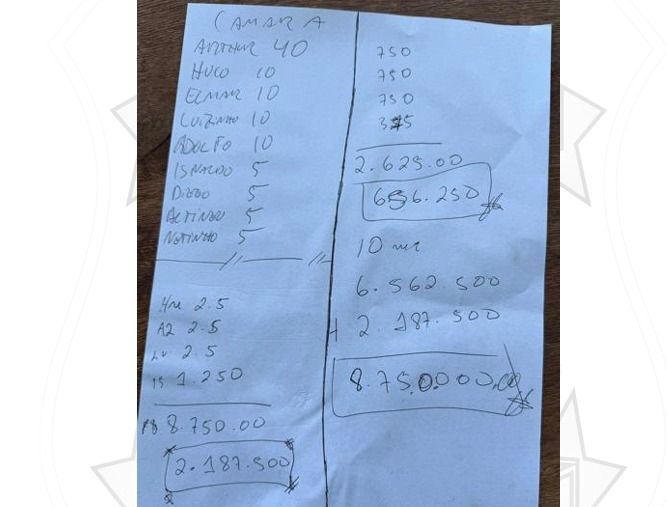 CAMARA
ARTHUR 40
HUGO 10
ELMAR 10
LUIZINHO 10
ADOLFO 10
ISNALDO 5
DIEGO 5
ALTINEU 5
NETINHO 5
HM 2.5
A2 2.5
LU 2.5
IS 1.250
8.750.00
2.187.500
750
750
750
375
2.625.00
656.250
10
6.562.500
+ 2.187.500
8.750.000,00